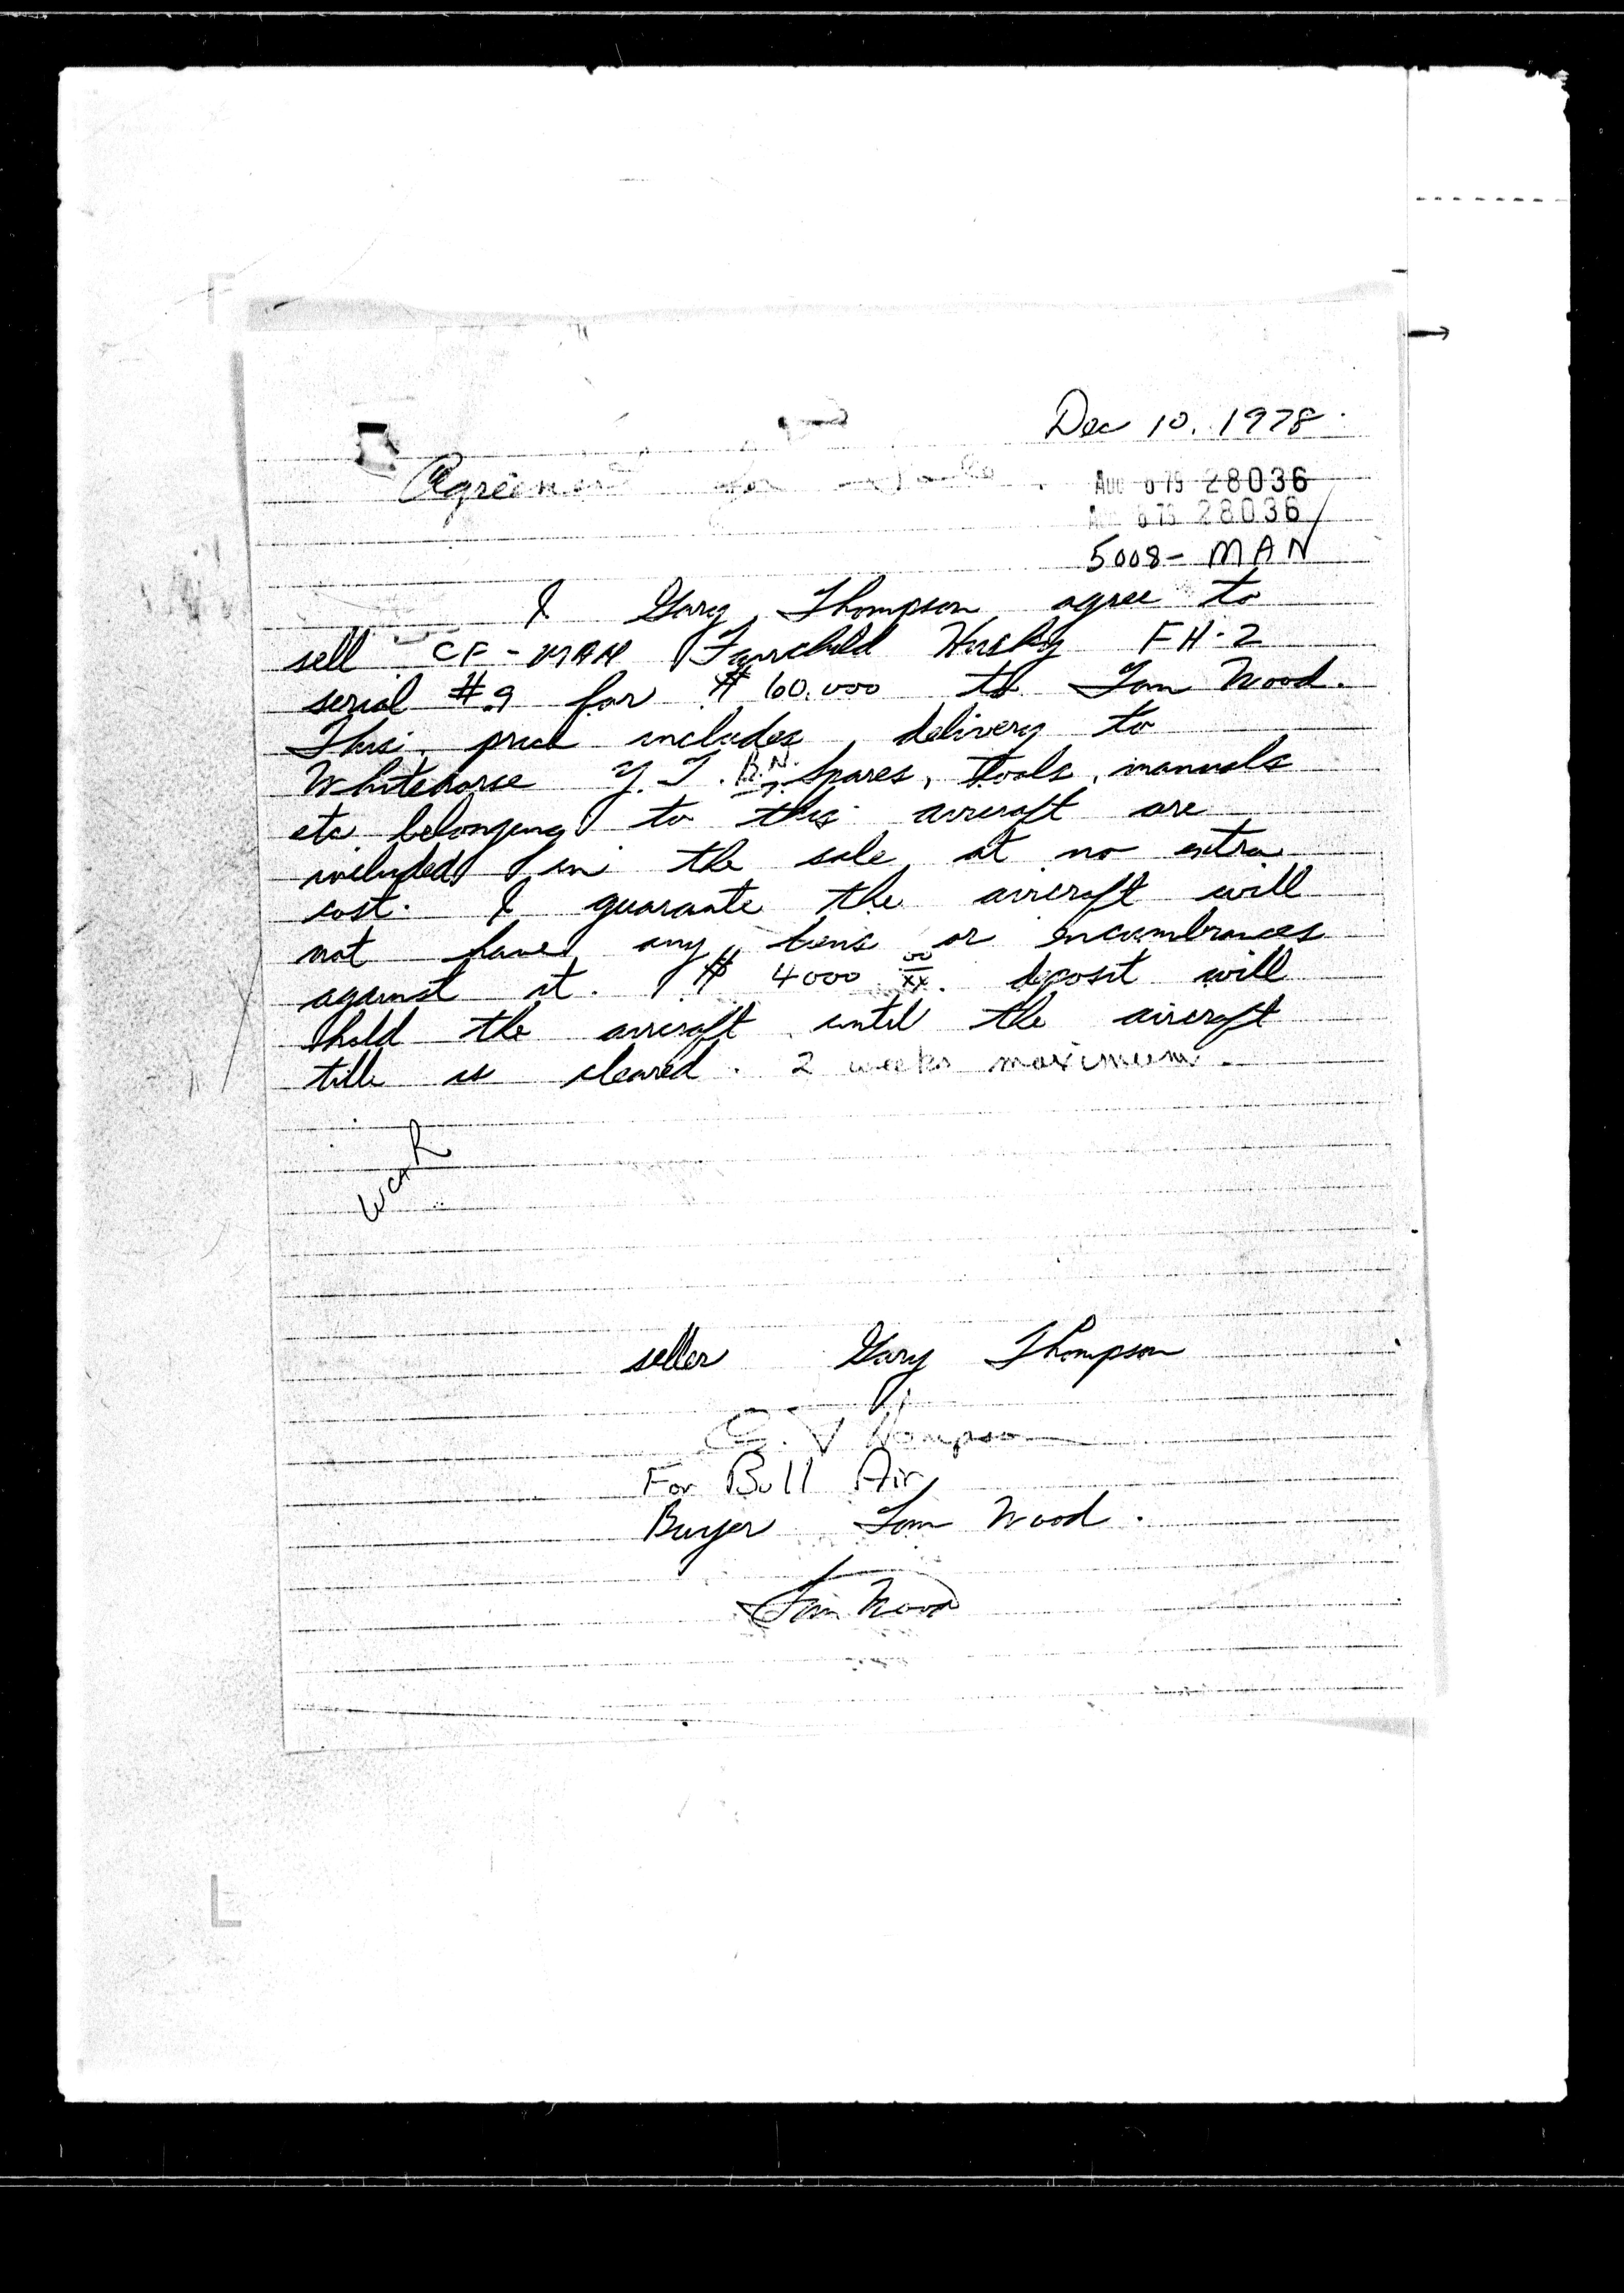 F
Dec 10, 1978
Agreement for Sale
AUG 6 79 28036
AUG 6 79 28036
5008- MAN
I Gary Thompson agree to
sell CF-MAN Fairchild Husky FH-2
serial #9 for $ 60,000 to Tom Wood.
This price includes delivery to
Whitehorse Y.T. B.N. Spares, tools, manuals
etc belonging to this aircraft are
included in the sale at no extra
cost. I guarante the aircraft will
not have any liens or encumbrances
against it. $ 4000 00/xx. deposit will
hold the aircraft until the aircraft
title is cleared. 2 weeks maximum.
seller Gary Thompson
G. Thompson
For Bull Air
Buyer Tom Wood.
Tom Wood
L